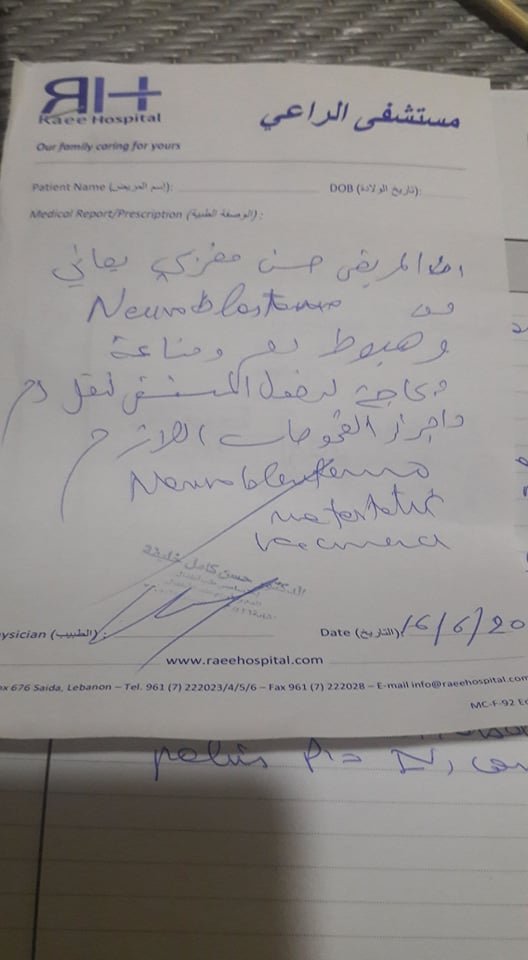 RH+
Raee Hospital
مستشفى الراعي
Our family caring for yours
Patient Name (اسم المريض): DOB (تاريخ الولادة):
Medical Report/Prescription (الوصفة الطبية) :
المريض حسن يعاني
من Neuroblastoma
وهبوط دم ومناعة
بحاجة لدخول المستشفى لنقل دم
واجراء الفحوصات اللازمة
Neuroblastoma
metastatic
حسن كامل خليفة
ysician (الطبيب) : Date (التاريخ): 16/6/20
www.raeehospital.com
ox 676 Saida, Lebanon – Tel. 961 (7) 222023/4/5/6 – Fax 961 (7) 222028 – E-mail info@raeehospital.com
MC-F-92 Ed